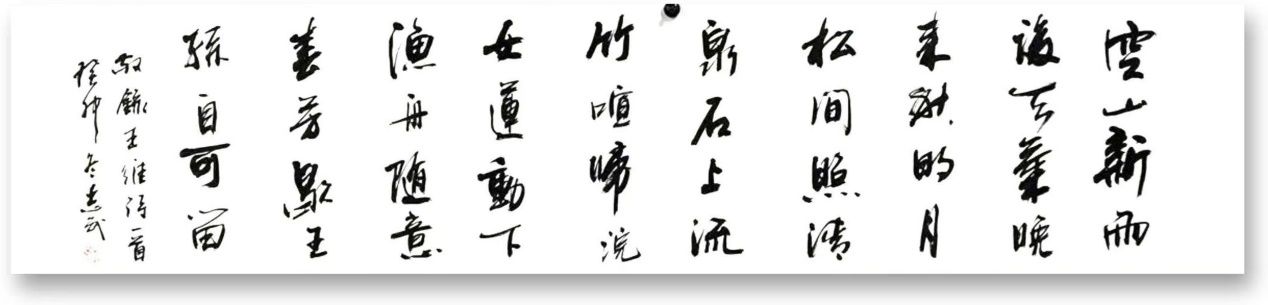 空山新雨
後天氣晚
來秋明月
松間照清
泉石上流
竹喧歸浣
女蓮動下
漁舟随意
春芳歇王
孫自可留
敬錄王維詩一首
癸卯冬志武